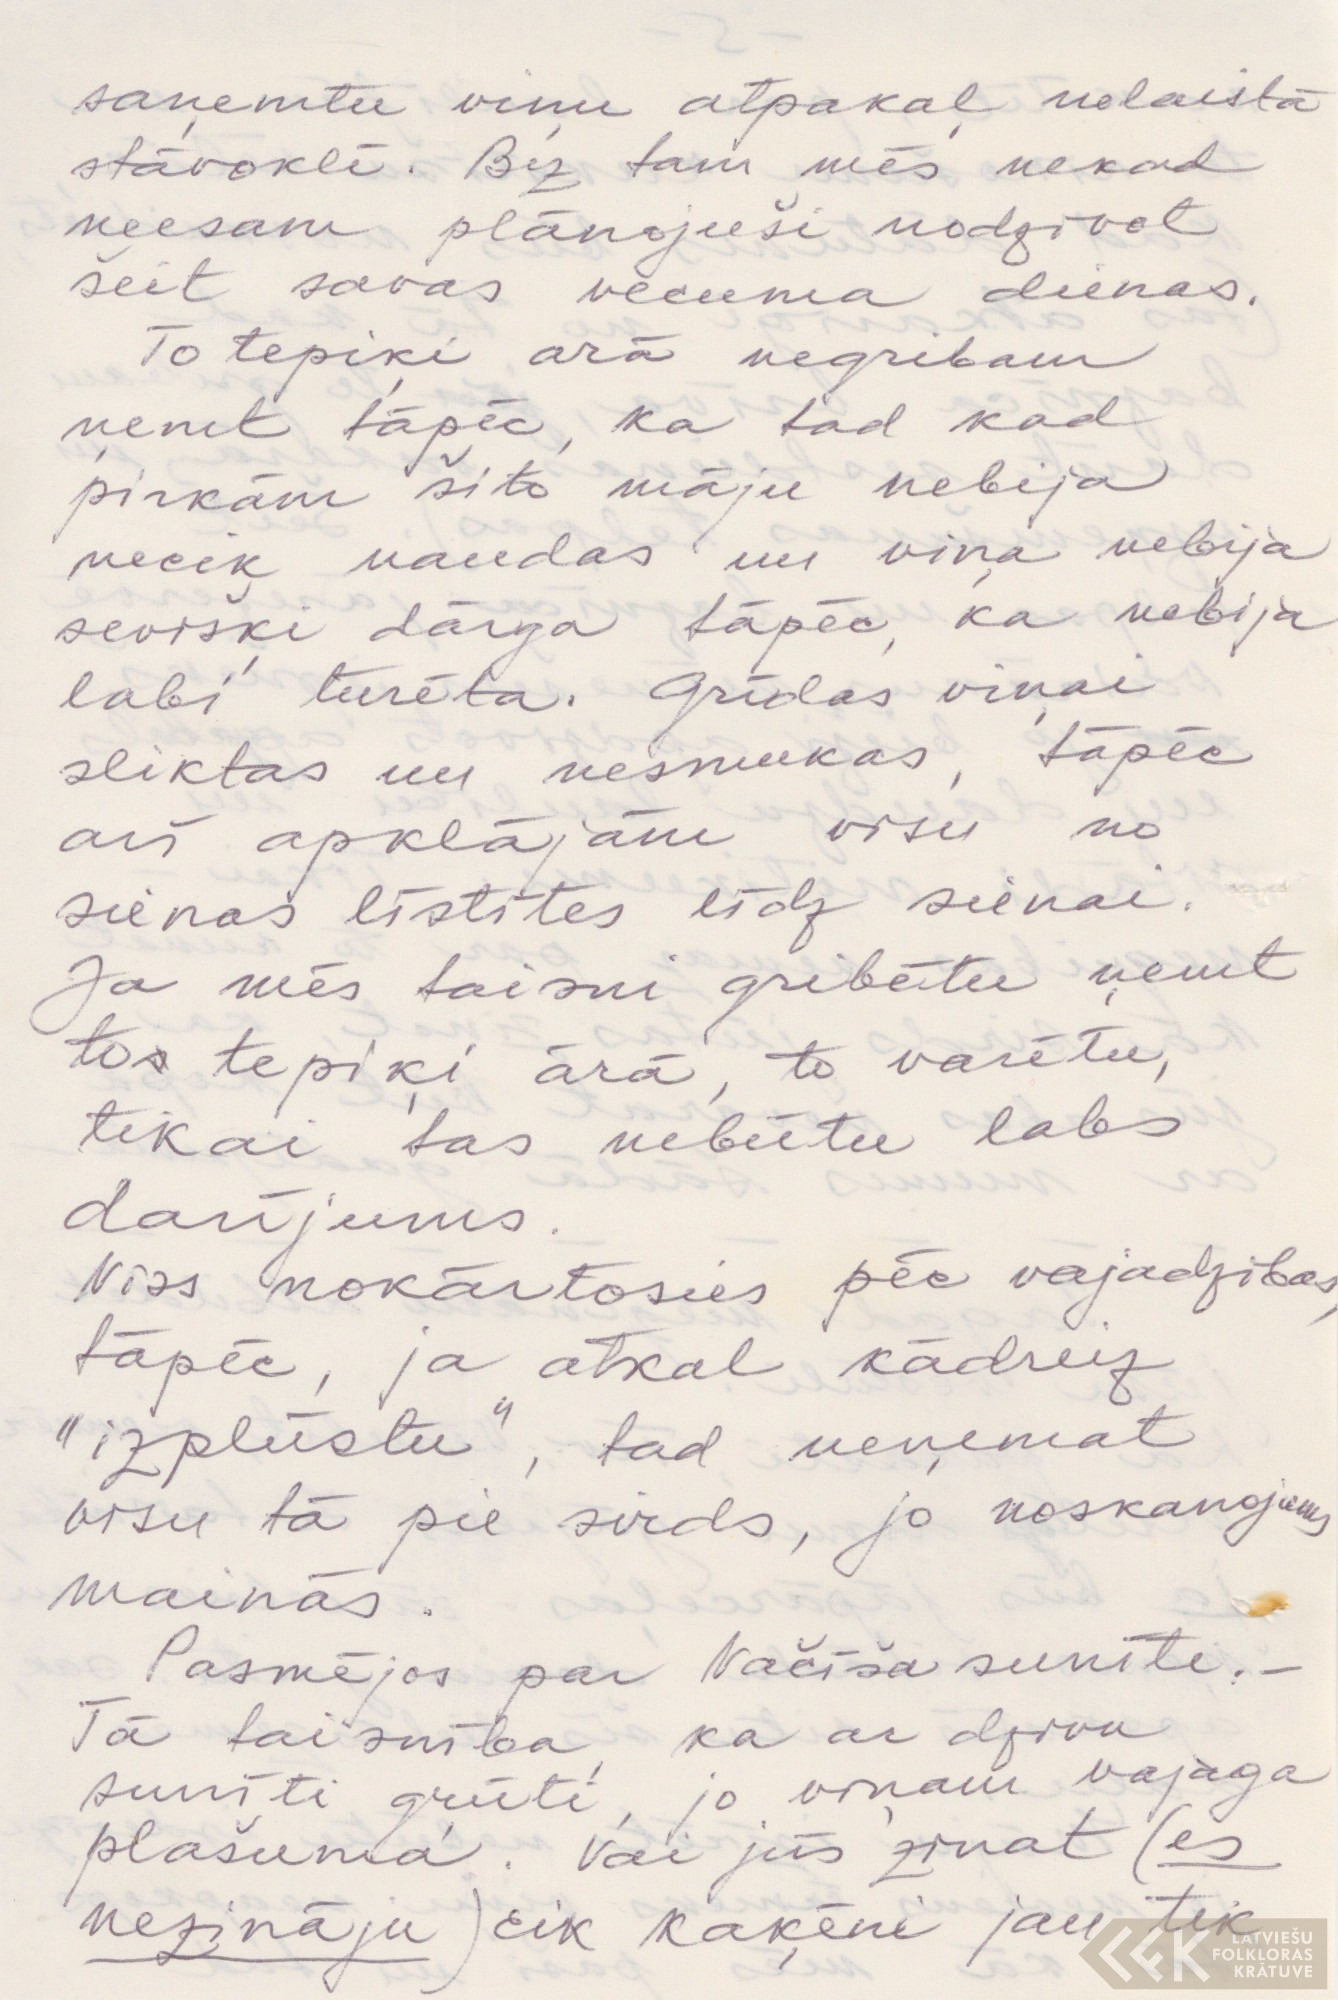 saņemtu viņu atpakaļ nelaistā
stāvoklī. Bez tam mēs nekad
neesam plānojuši nodzīvot
šeit savas vecuma dienas.
To tepiķi ārā negribam
ņemt tāpēc, ka tad kad
pirkām šito māju nebija
necik naudas un viņa nebija
sevišķi dārga tāpēc, ka nebija
labi turēta. Grīdas viņai
sliktas un nesmukas, tāpēc
arī apklājām visu no
sienas līstītes līdz sienai.
Ja mēs taisni gribētu ņemt
tos tepiķi ārā, to varētu,
tikai tas nebūtu labs
darījums.
Viss nokārtosies pēc vajadzības,
tāpēc, ja atkal kādreiz
"izplūstu", tad neņemat
visu tā pie sirds, jo noskaņojums
mainās.
Pasmējos par Vačīša sunīti. –
Tā taisnība, ka ar dzīvu
sunīti grūti, jo viņam vajaga
plašuma. Vai jūs zinat (es
nezināju) cik kaķēni jau tik
LATVIEŠU
FOLKLORAS
KRĀTUVE